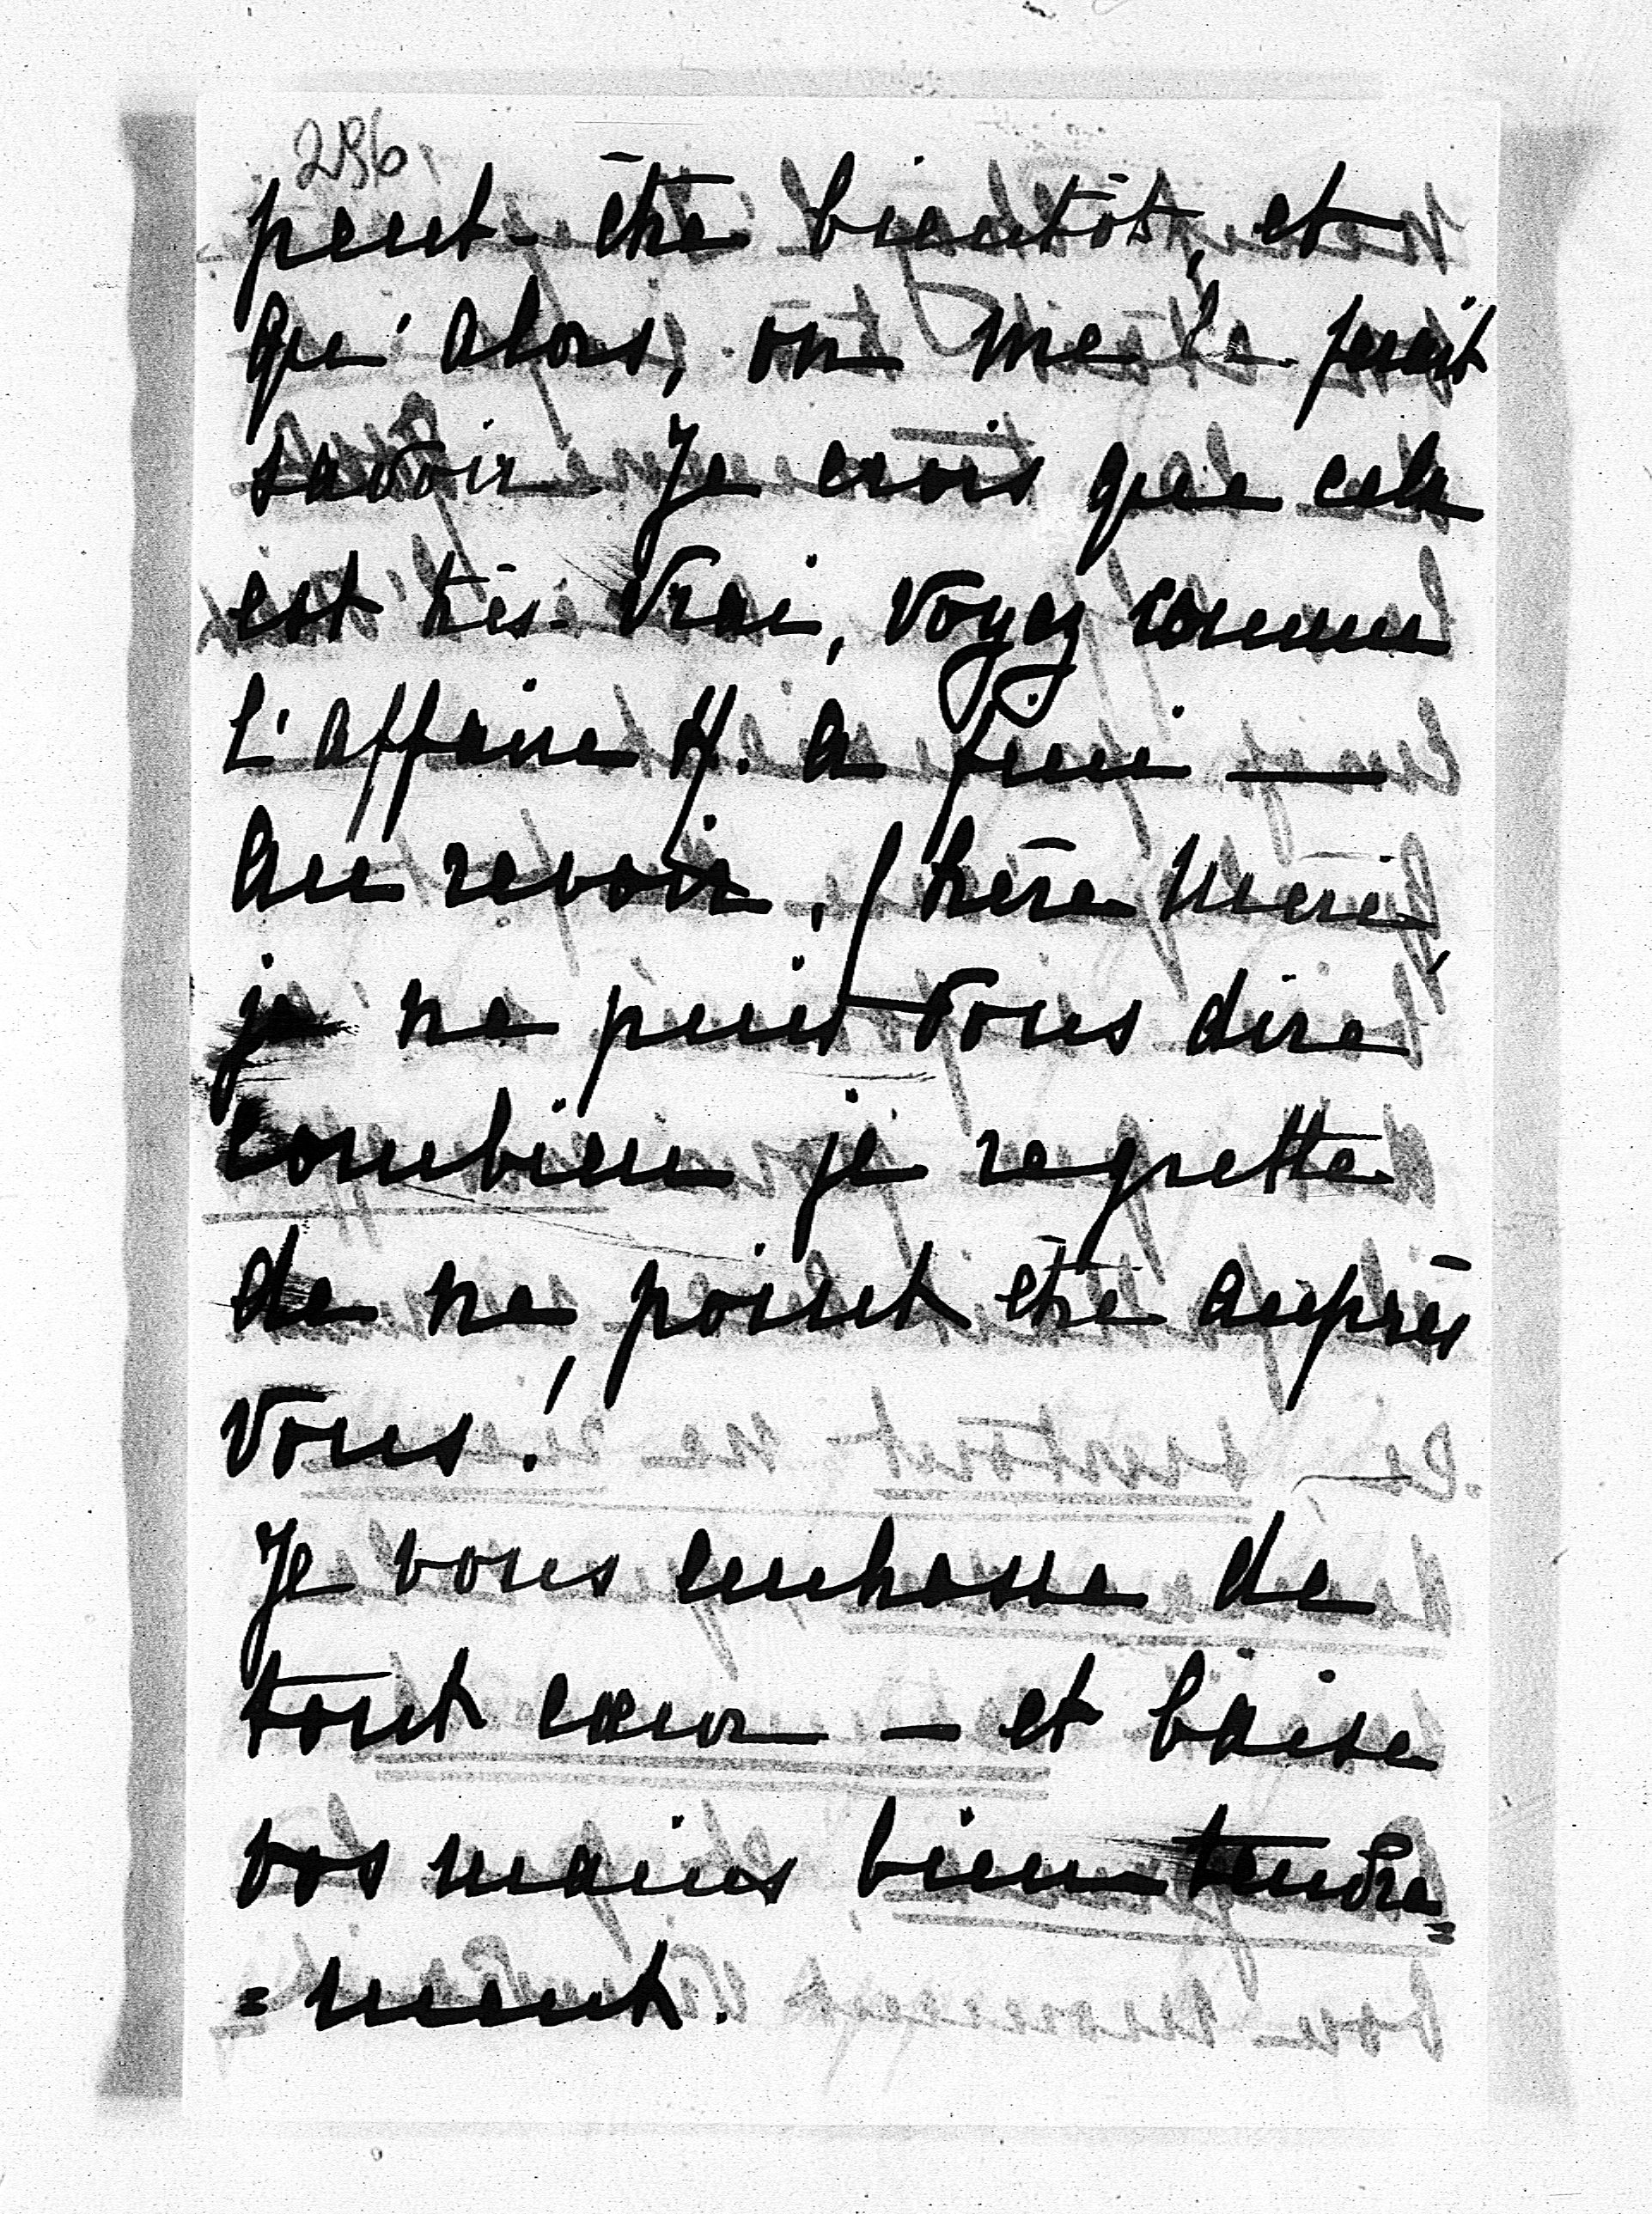 296
peut-être bientôt, et
qu'alors, on me le ferait
savoir. Je crois que cela
est très-vrai, voyez comme
l'affaire H. a fini —
Au revoir, Chère Mère,
je ne puis vous dire
combien je regrette
de ne point être auprès
vous!
Je vous embrasse de
tout cœur — et baise
vos mains bien tendre=
=ment.